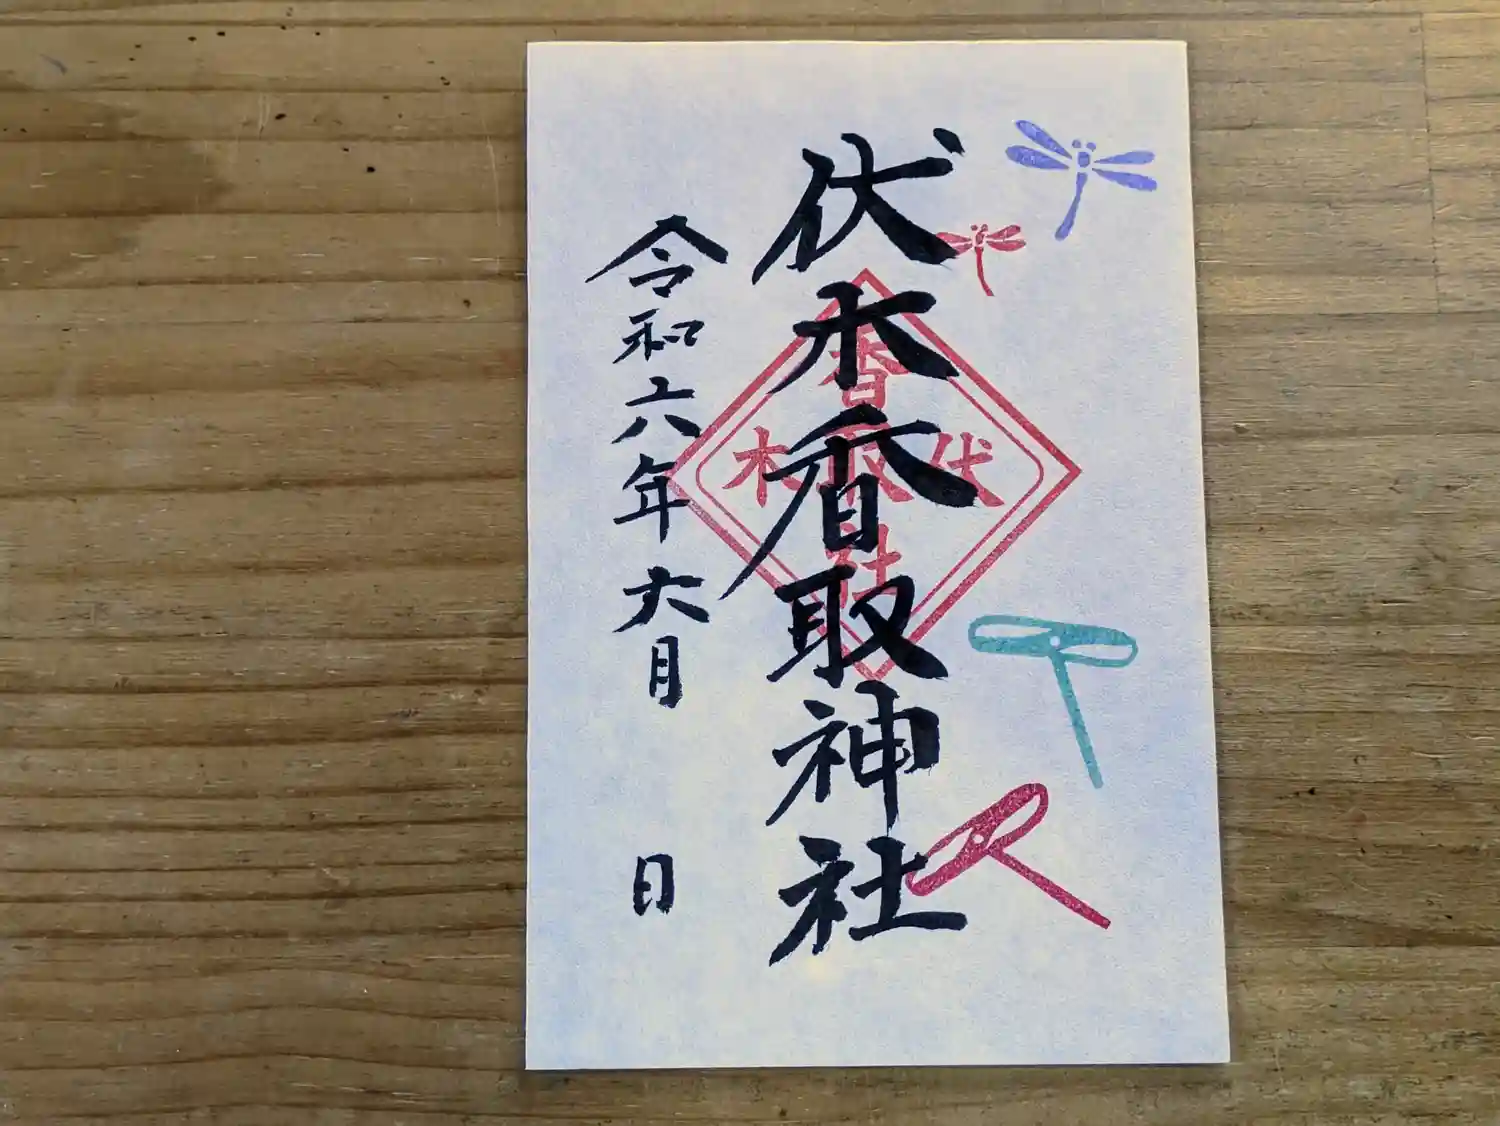 伏木香取神社
香取社
伏木
令和六年六月 日